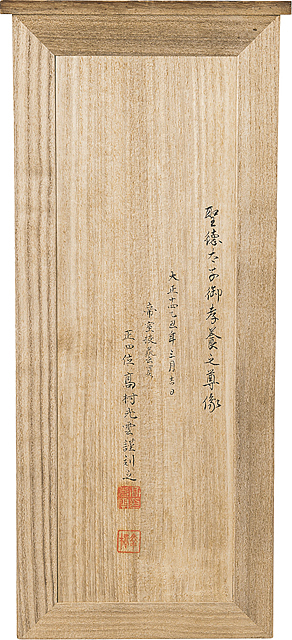 聖徳太子御孝養之尊像
大正十四乙丑年三月吉日
帝室技藝員
正四位髙村光雲謹刻之